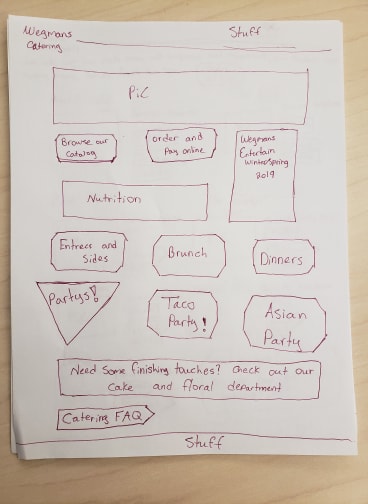 Wegmans Stuff
Catering
Pic
Browse our
Catalog
order and
Pay online
Wegmans
Entertain
Winter/Spring
2019
Nutrition
Entrees and
Sides
Brunch
Dinners
Partys!
Taco
Party!
Asian
Party
Need Some finishing touches? Check out our
Cake and floral department
Catering FAQ
Stuff